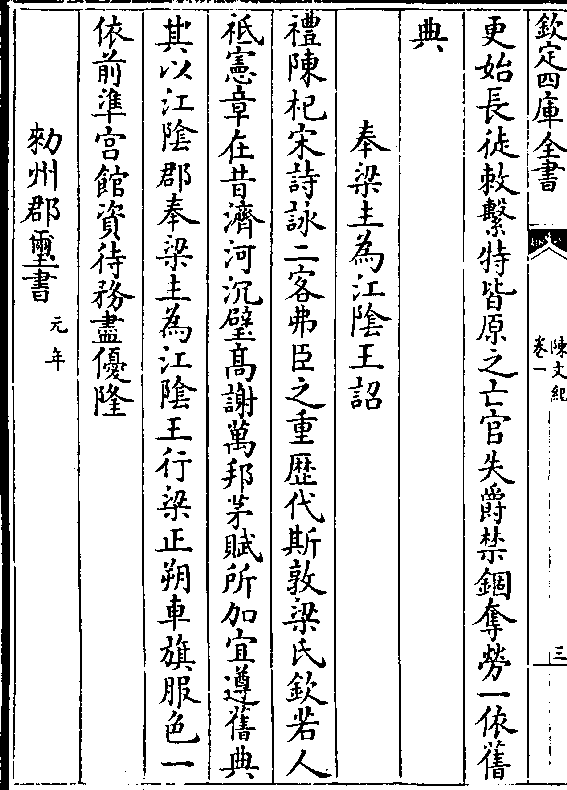 欽定四庫全書
陳文紀
卷一
三
更始長徒敕繫特皆原之亡官失爵禁錮奪勞一依舊
典
奉梁主為江陰王詔
禮陳杞宋詩詠二客弗臣之重歴代斯敦梁氏欽若人
祗憲章在昔濟河沉璧高謝萬邦茅賦所加宜遵舊典
其以江陰郡奉梁主為江陰王行梁正朔車旗服色一
依前準宫館資待務盡優隆
勑州郡璽書 元年